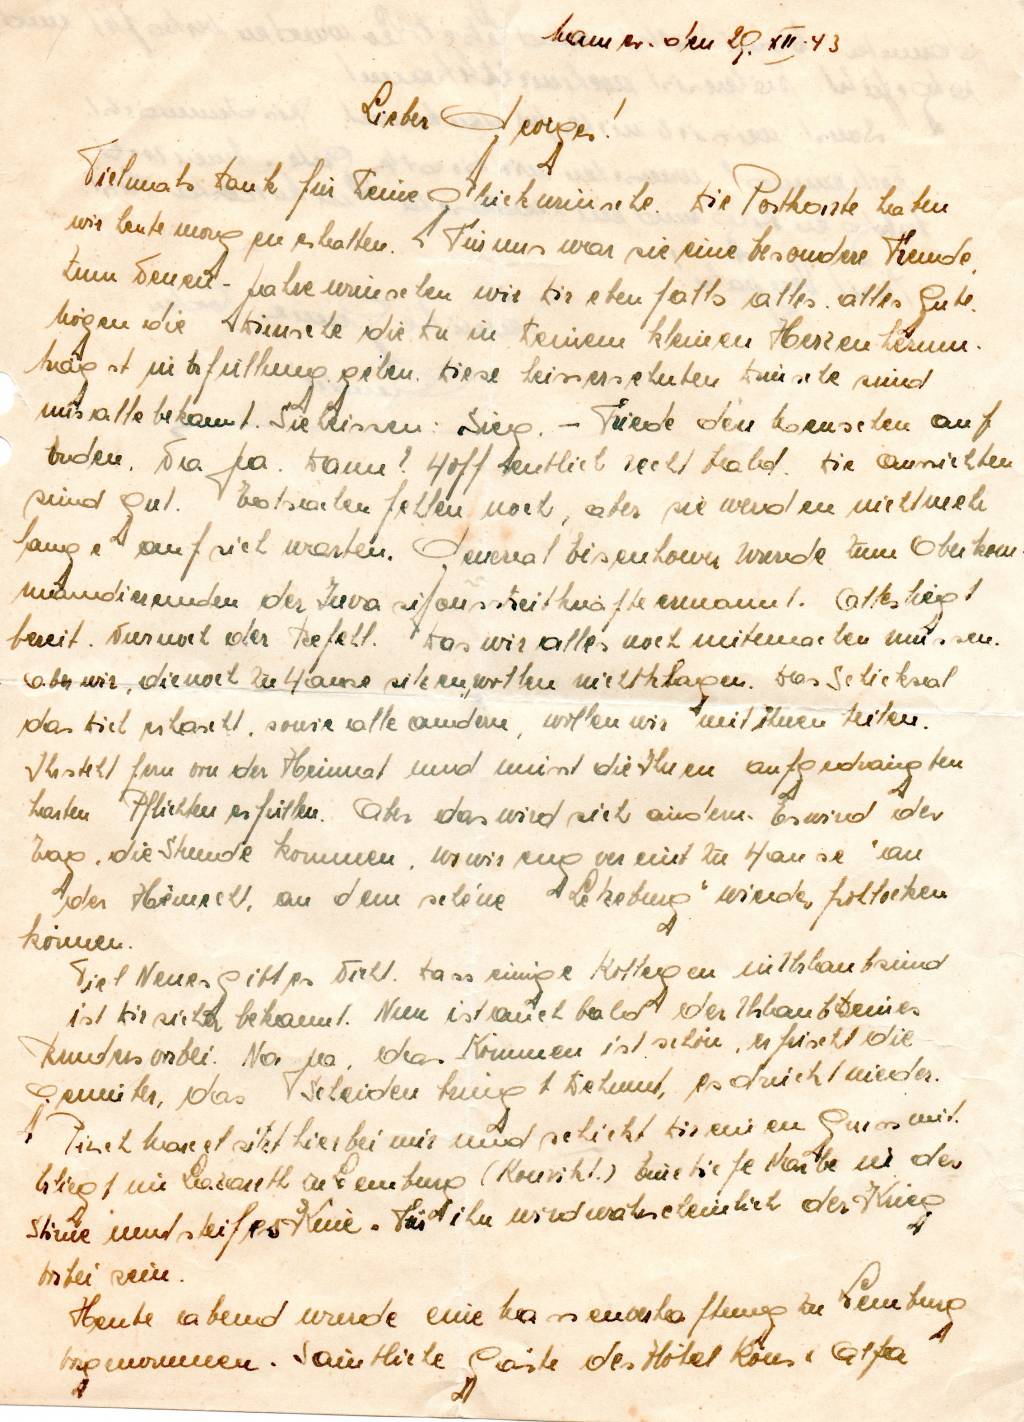 Mamer. den 29. XII. 43
Lieber Georges!
Vielmals Dank für Deine Glückwünsche. Die Postkarte haben
wir heute morgen erhalten. Für uns war sie eine besondere Freude.
Zum Neuen-Jahre wünschen wir Dir ebenfalls alles. alles Gute.
Mögen die Wünsche die Du in Deinem kleinen Herzen herum-
trägst in Erfüllung gehen. Diese heissersehnten Wünsche sind
uns alle bekannt. Sie heissen: Sieg. — Friede den Menschen auf
Erden. Na ja. Wann? Hoffentlich recht bald. Die Aussichten
sind gut. Tatsachen fehlen noch, aber sie werden nicht mehr
lange auf sich warten. General Eisenhower wurde zum Oberkom-
mandierenden der Invasionsstreitkräfte ernannt. Alles liegt
bereit. Nur noch der Befehl. Das wir alles noch mitmachen müssen.
Aber wir, die noch zu Hause sitzen, wollen nicht klagen. Das Schicksal
das Dich erhascht, sowie alle andern, wollen wir mit Ihnen teilen.
Ihr steht fern von der Heimat und müsst die Ihnen aufgedrängten
harten Pflichten erfüllen. Aber das wird sich ändern. Es wird der
Tag, die Stunde kommen, wo wir eng vereint zu Hause an
der Heimecht, an dem schéine "Letzeburg" wieder frohlocken
können.
Viel Neues gibt es nicht. Dass einige Kollegen in Urlaub sind
ist Dir sicher bekannt. Nun ist auch bald der Urlaub Deines
Bruders vorbei. Na ja, das Kommen ist schön, erfrischt die
Gemüter, das Scheiden bringt Wehmut, es drückt nieder.
Marcel sitzt hier bei mir und schickt Dir einen Gruss mit.
Er liegt im Lazareth in Lemburg (Konvikt.) Eine tiefe Narbe in der
Stirne und steifes Knie. Für ihn wird wahrscheinlich der Krieg
vorbei sein.
Heute abend wurde eine Massenverhaftung zu Lemburg
vorgenommen. Sämtliche Gäste des Hôtel Kons & Alfa